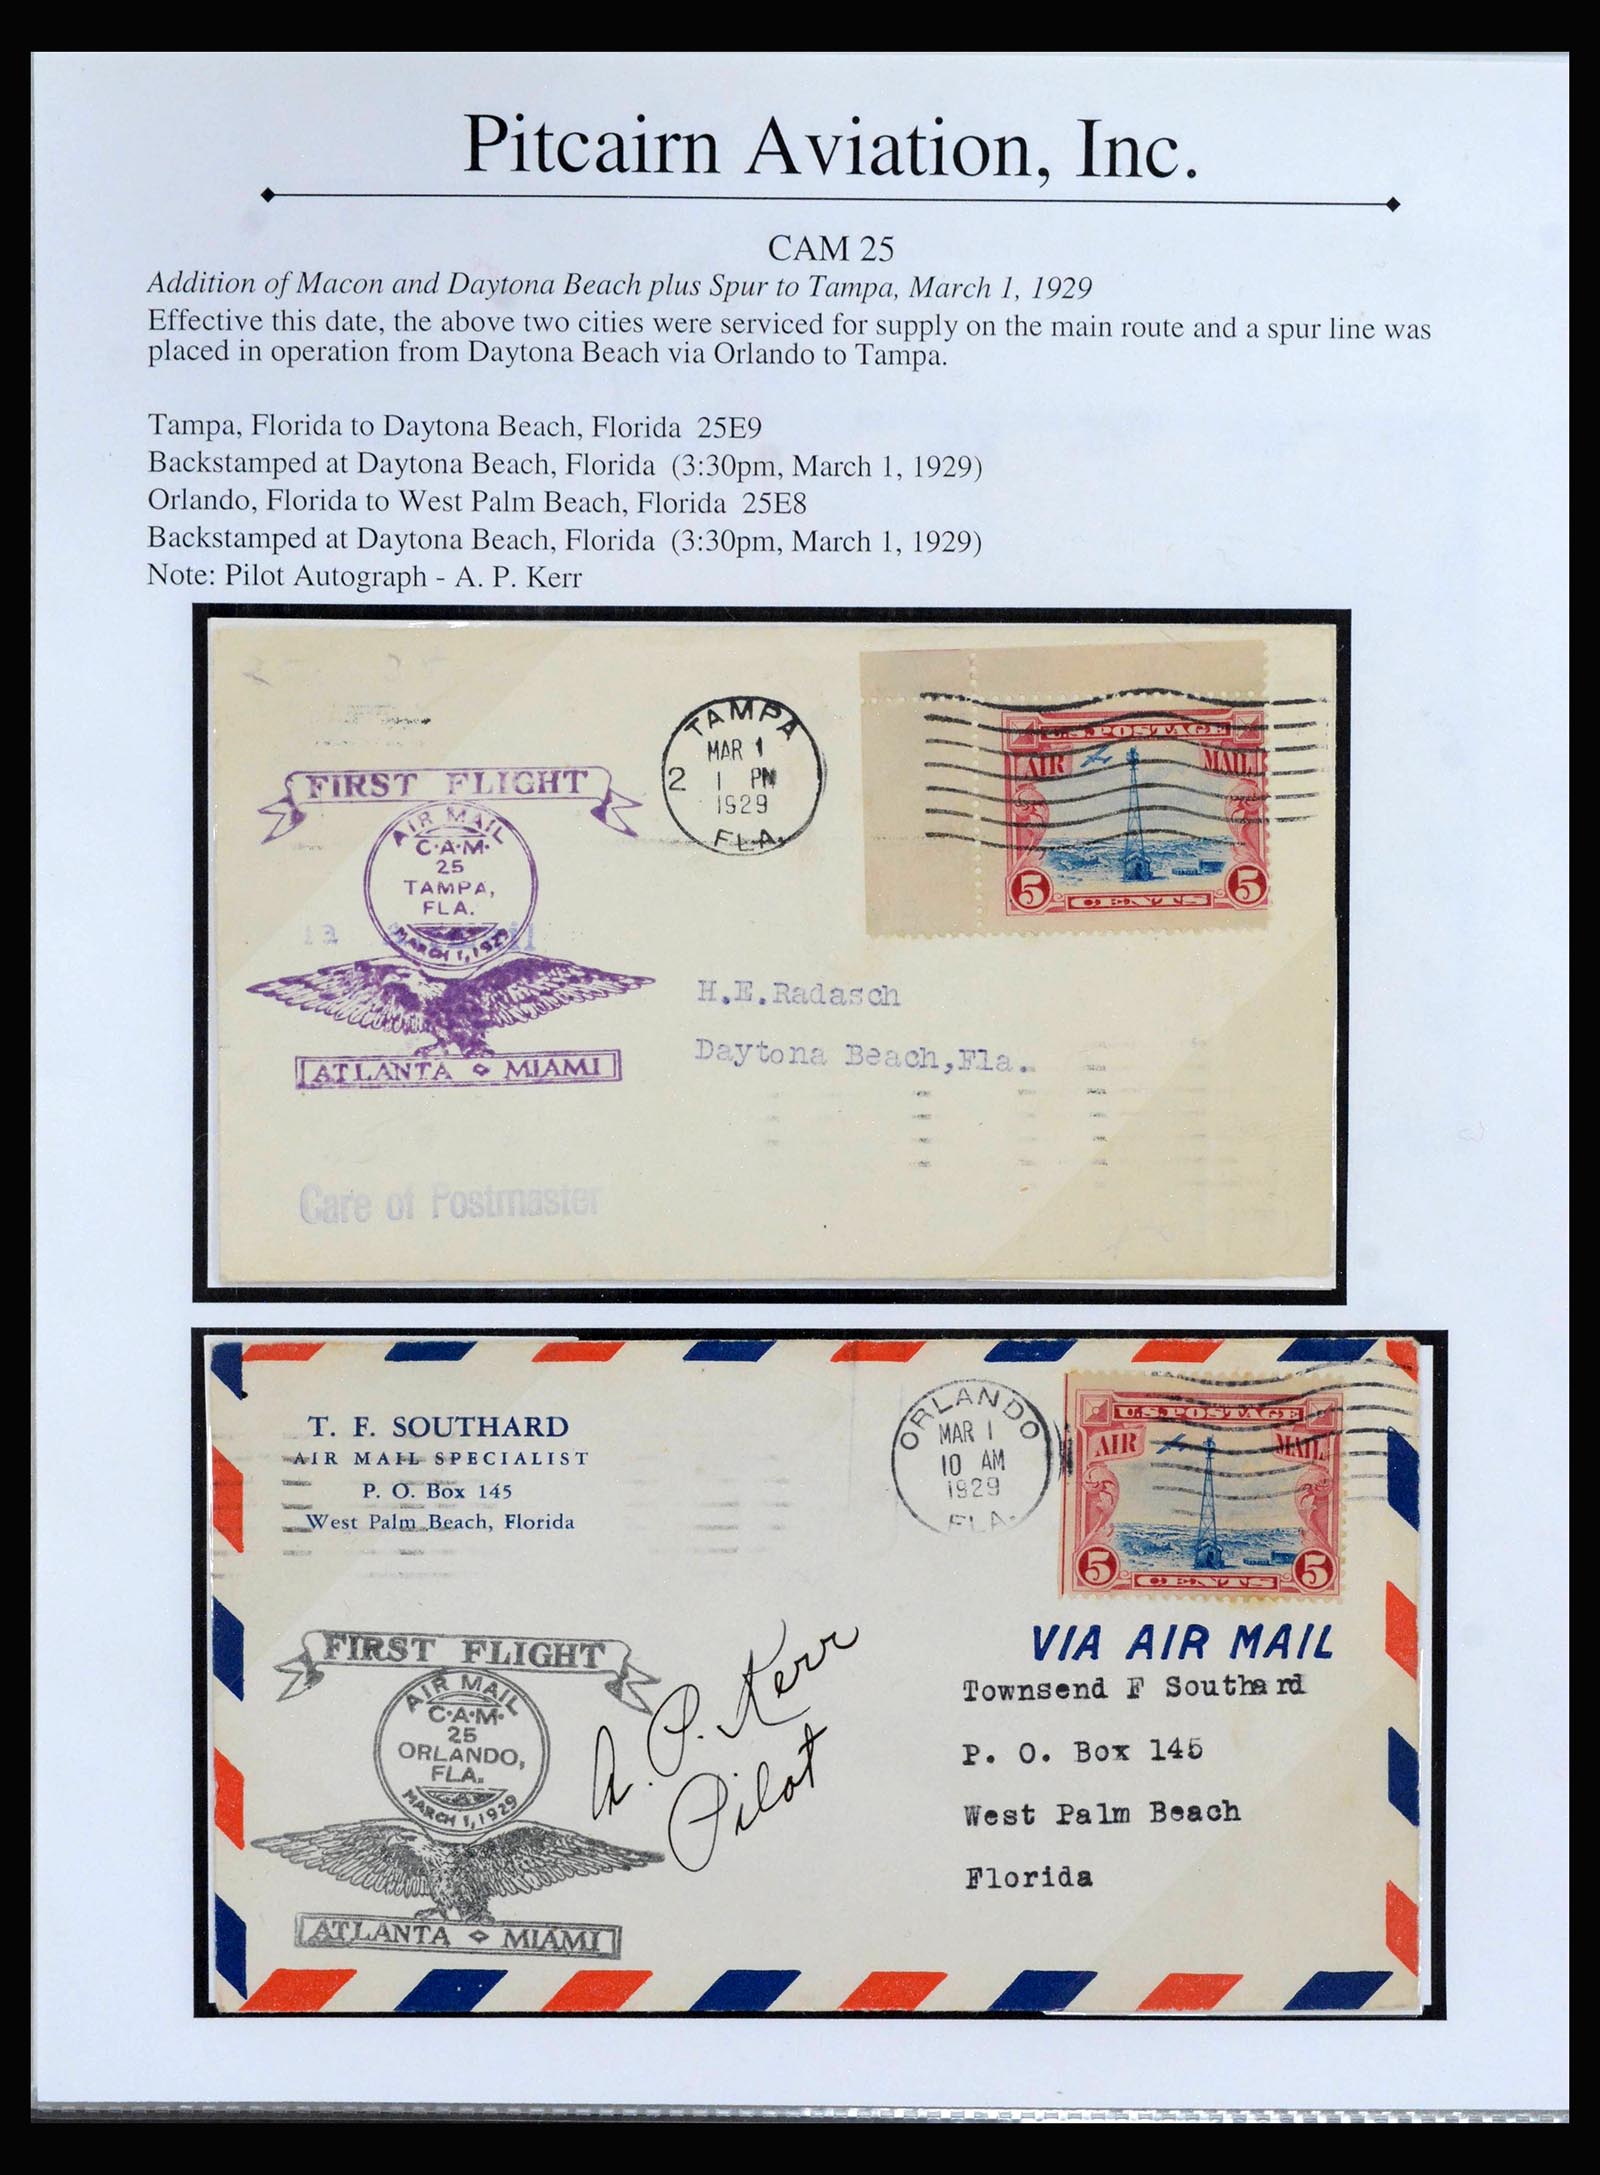 Pitcairn Aviation, Inc.
CAM 25
Addition of Macon and Daytona Beach plus Spur to Tampa, March 1, 1929
Effective this date, the above two cities were serviced for supply on the main route and a spur line was
placed in operation from Daytona Beach via Orlando to Tampa.
Tampa, Florida to Daytona Beach, Florida 25E9
Backstamped at Daytona Beach, Florida (3:30pm, March 1, 1929)
Orlando, Florida to West Palm Beach, Florida 25E8
Backstamped at Daytona Beach, Florida (3:30pm, March 1, 1929)
Note: Pilot Autograph - A. P. Kerr
TAMPA
MAR 1
2 1 PM
1929
FLA.
U.S. POSTAGE
AIR MAIL
5 5
CENTS
FIRST FLIGHT
AIR MAIL
C.A.M.
25
TAMPA,
FLA.
MARCH 1, 1929
ATLANTA MIAMI
H.E.Radasch
Daytona Beach,Fla.
Care of Postmaster
T. F. SOUTHARD
AIR MAIL SPECIALIST
P. O. Box 145
West Palm Beach, Florida
ORLANDO
MAR 1
10 AM
1929
FLA.
U.S. POSTAGE
AIR MAIL
5 5
CENTS
VIA AIR MAIL
Townsend F Southard
P. O. Box 145
West Palm Beach
Florida
FIRST FLIGHT
AIR MAIL
C.A.M.
25
ORLANDO,
FLA.
MARCH 1, 1929
ATLANTA MIAMI
A. P. Kerr
Pilot